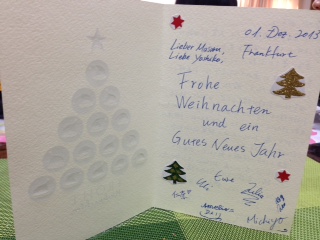 01. Dez. 2013
Frankfurt
Lieber Masami,
Liebe Yoshiko,
Frohe
Weihnachten
und ein
Gutes Neues Jahr
Eure
Michiyo